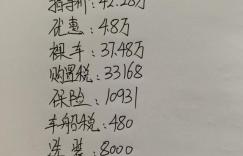 指导价:42.28万
优惠:4.8万
裸车:37.48万
购置税:33168
保险:10931
车船税:480
8000